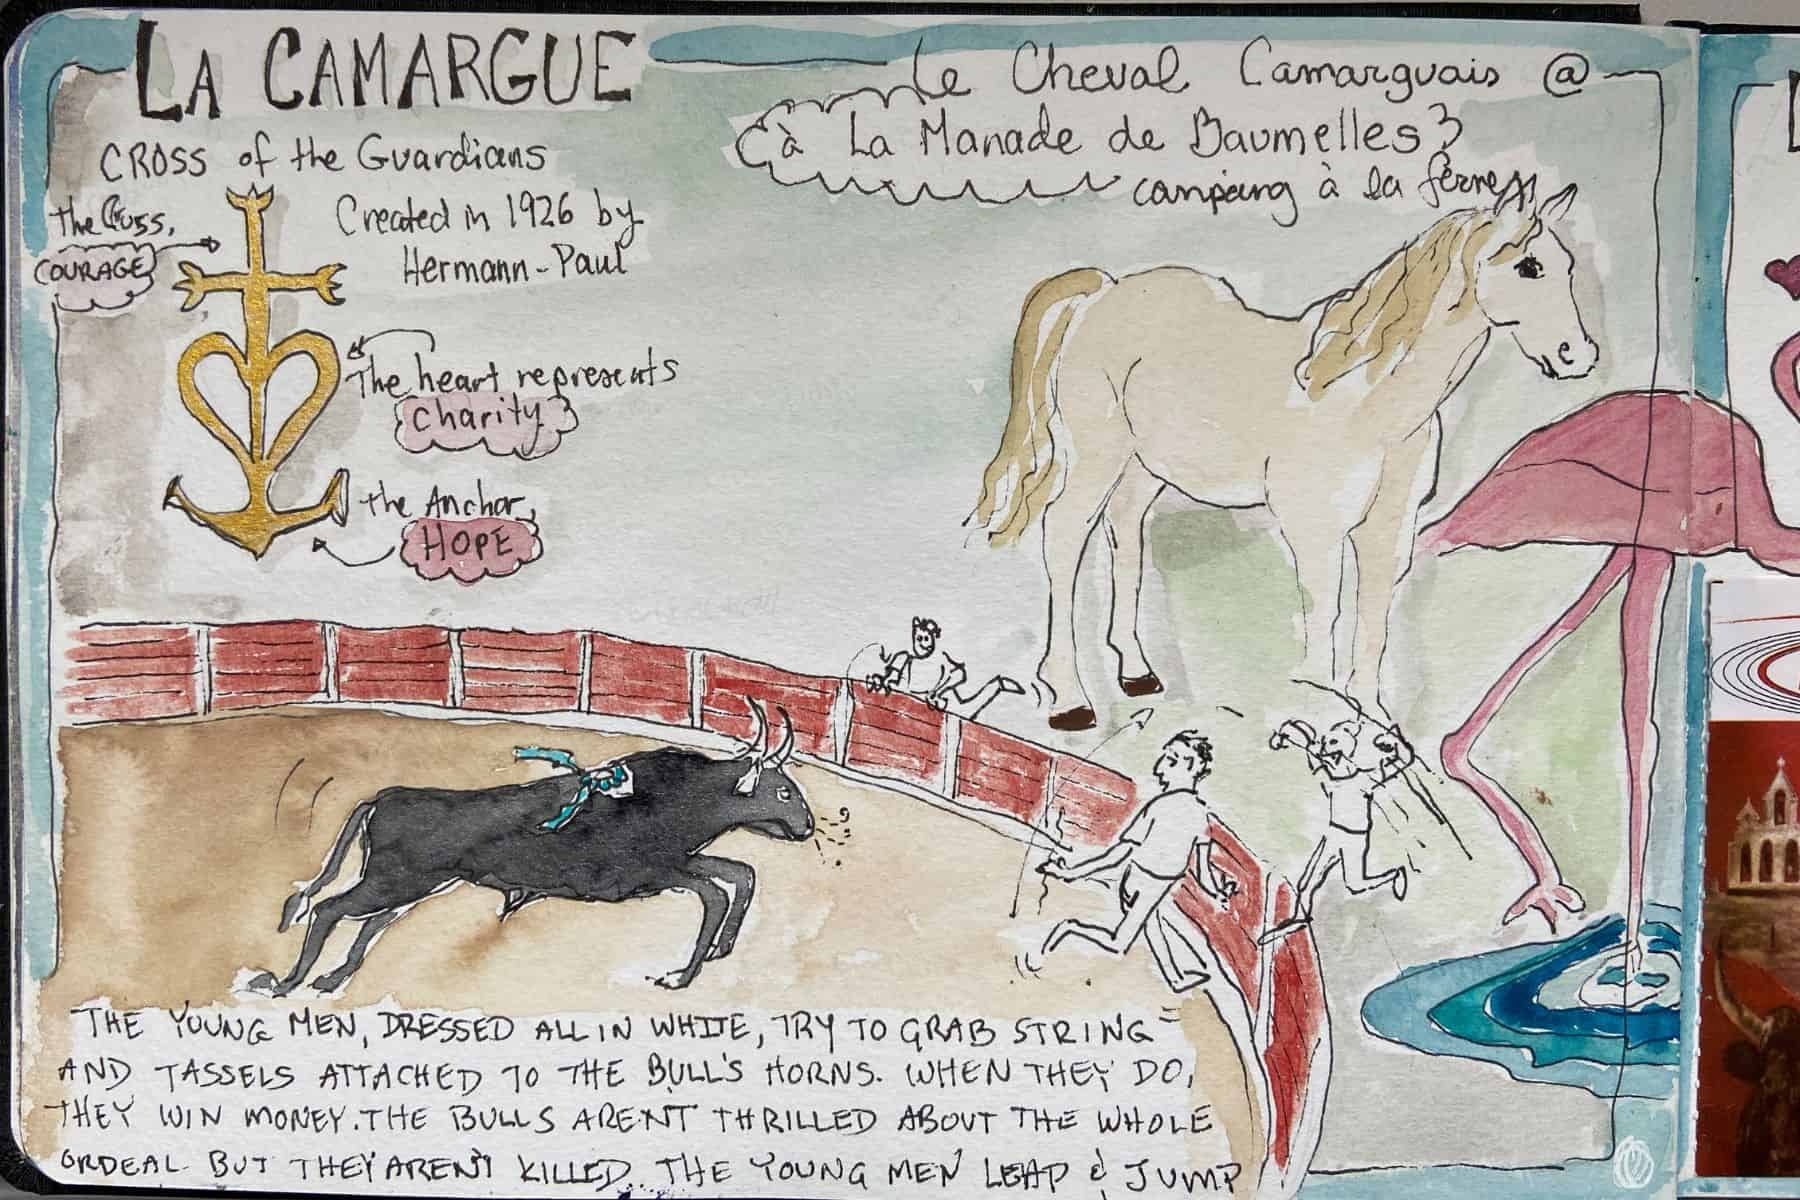 LA CAMARGUE
CROSS of the Guardians
Created in 1926 by
Hermann-Paul
the Cross,
COURAGE
The heart represents
charity
the Anchor,
HOPE
Le Cheval Camarguais @
à La Manade de Baumelles
camping à la ferme
THE YOUNG MEN, DRESSED ALL IN WHITE, TRY TO GRAB STRING
AND TASSELS ATTACHED TO THE BULL'S HORNS. WHEN THEY DO,
THEY WIN MONEY. THE BULLS AREN'T THRILLED ABOUT THE WHOLE
ORDEAL BUT THEY AREN'T KILLED. THE YOUNG MEN LEAP & JUMP